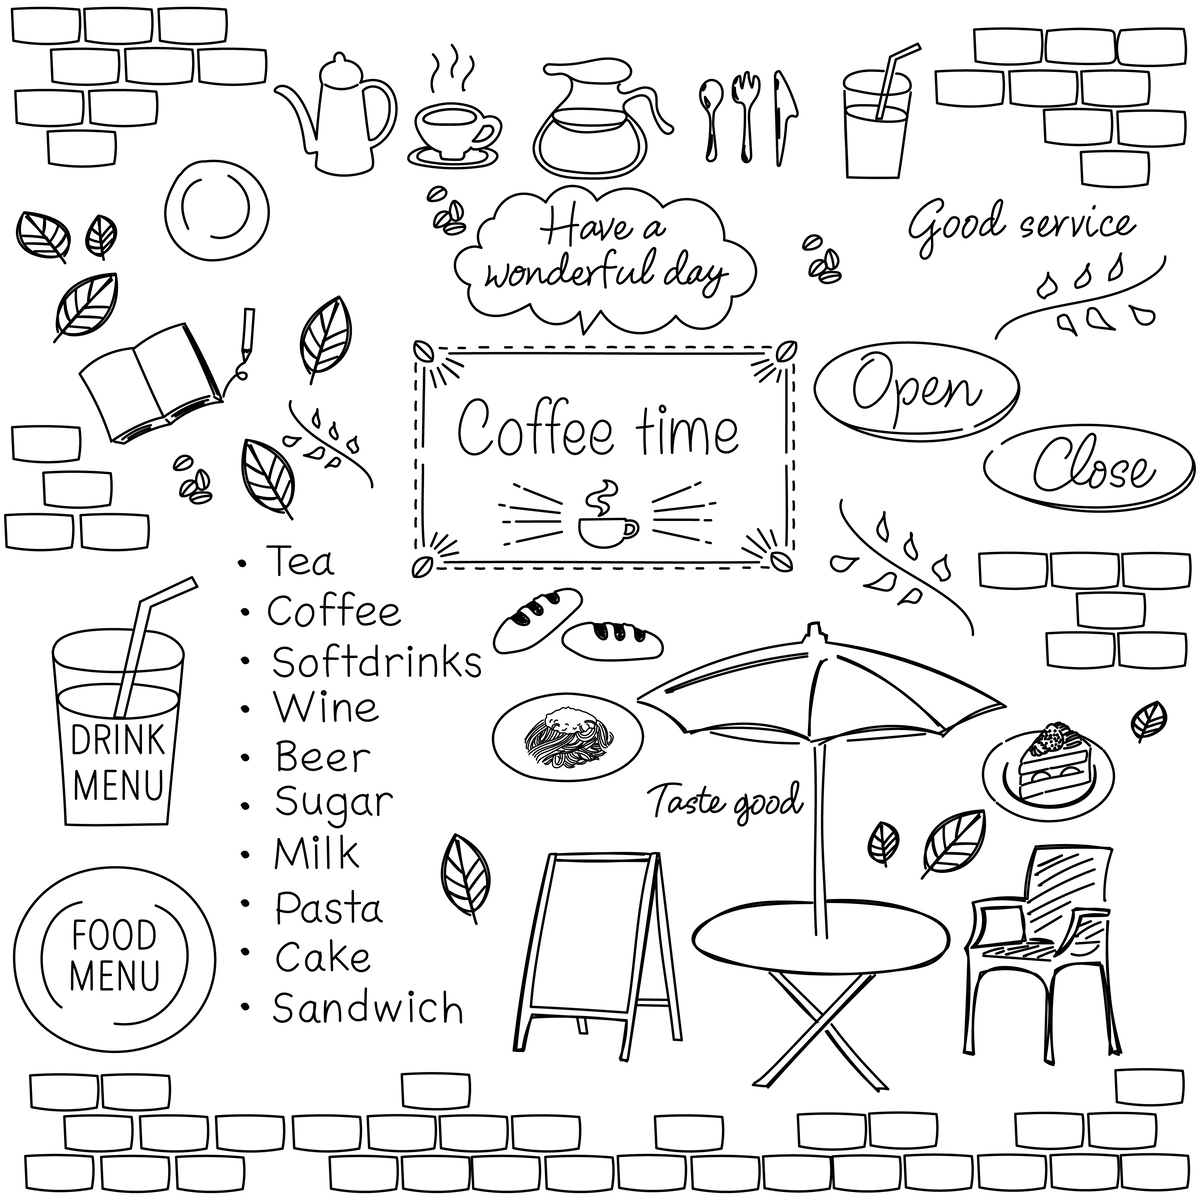 Good service
Have a
wonderful day
Open
Coffee time
Close
• Tea
• Coffee
• Softdrinks
• Wine
• Beer
• Sugar
• Milk
• Pasta
• Cake
• Sandwich
DRINK
MENU
Taste good
FOOD
MENU